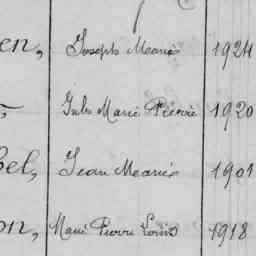 en, Joseph Marie 1924
Jules Marie Pierre 1920
bel, Jean Marie 1901
on, Marie Pierre Louis 1918